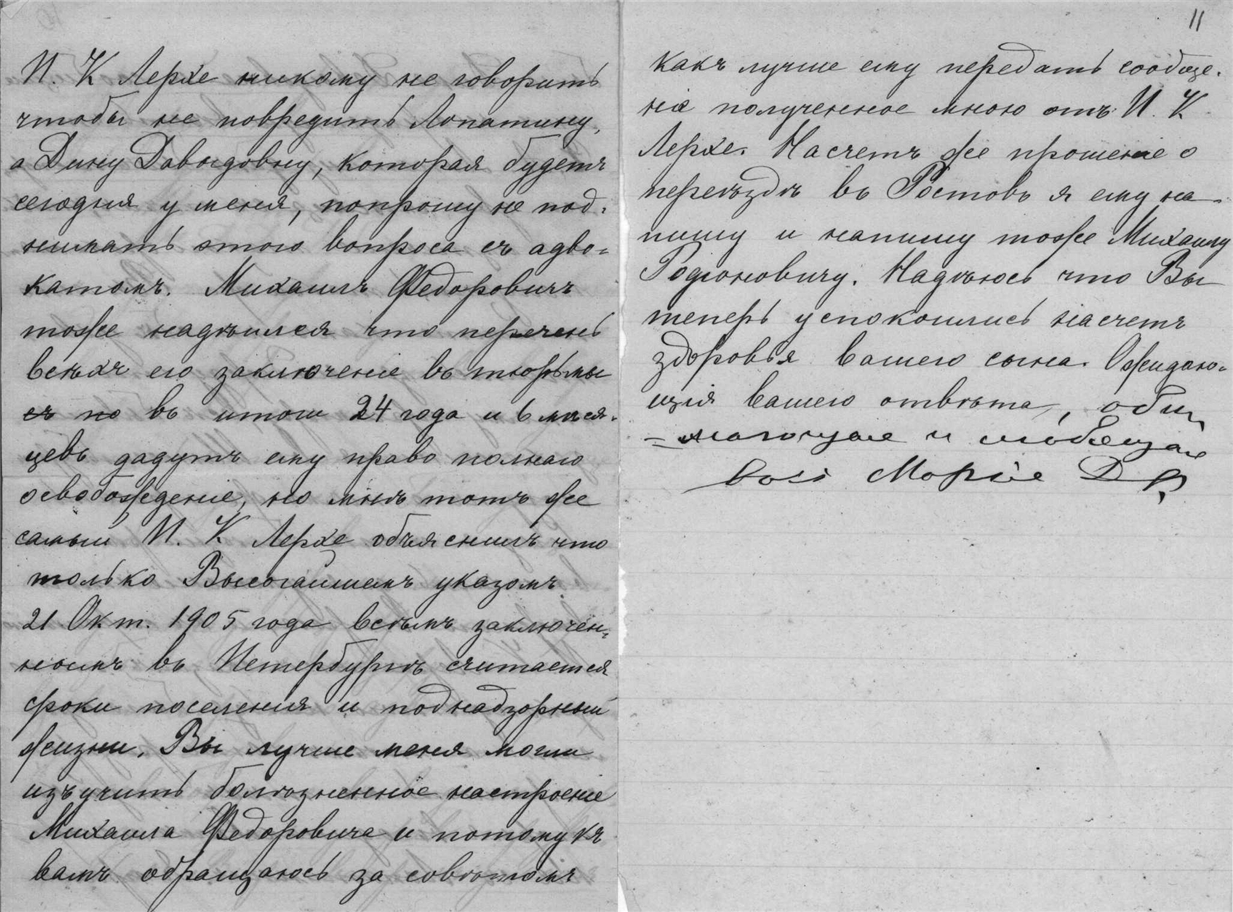 И. К Лерхе никому не говорить
чтобы не повредить Лопатину,
а Дину Давыдовну, которая будетъ
сегодня у меня, попрошу не под-
нимать этого вопроса съ адво-
катомъ. Михаилъ Федоровичъ
тоже надѣился что перечень
всѣхъ его заключеніе въ тюрьмы
съ по въ итоги 24 года и 6 мися-
цевъ дадутъ ему право полнаго
освобожденіе, но мнѣ тотъ же
самый И. К Лерхе объяснилъ что
только Высочайшемъ указомъ
21 Окт. 1905 года всѣмъ заключен-
ноимъ въ Петербургѣ считается
сроки поселенія и поднадзорный
жизни. Вы лучше меня могли
изъучить болѣзненное настроеніе
Михаила Федоровича и потому къ
вамъ обращаюсь за совѣтомъ
11
какъ лучше ему передать сообще-
ніе полученное мною отъ И. К.
Лерхе. Насчетъ же прошеніе о
переѣздѣ въ Ростовъ я ему на-
пишу и напишу тоже Михаилу
Родіоновичу. Надѣюсь что Вы
теперь успокоились насчетъ
здоровья вашего сына. Ожидаю-
щія вашего отвѣта, обни
=мающая и любящая
Васъ Марія